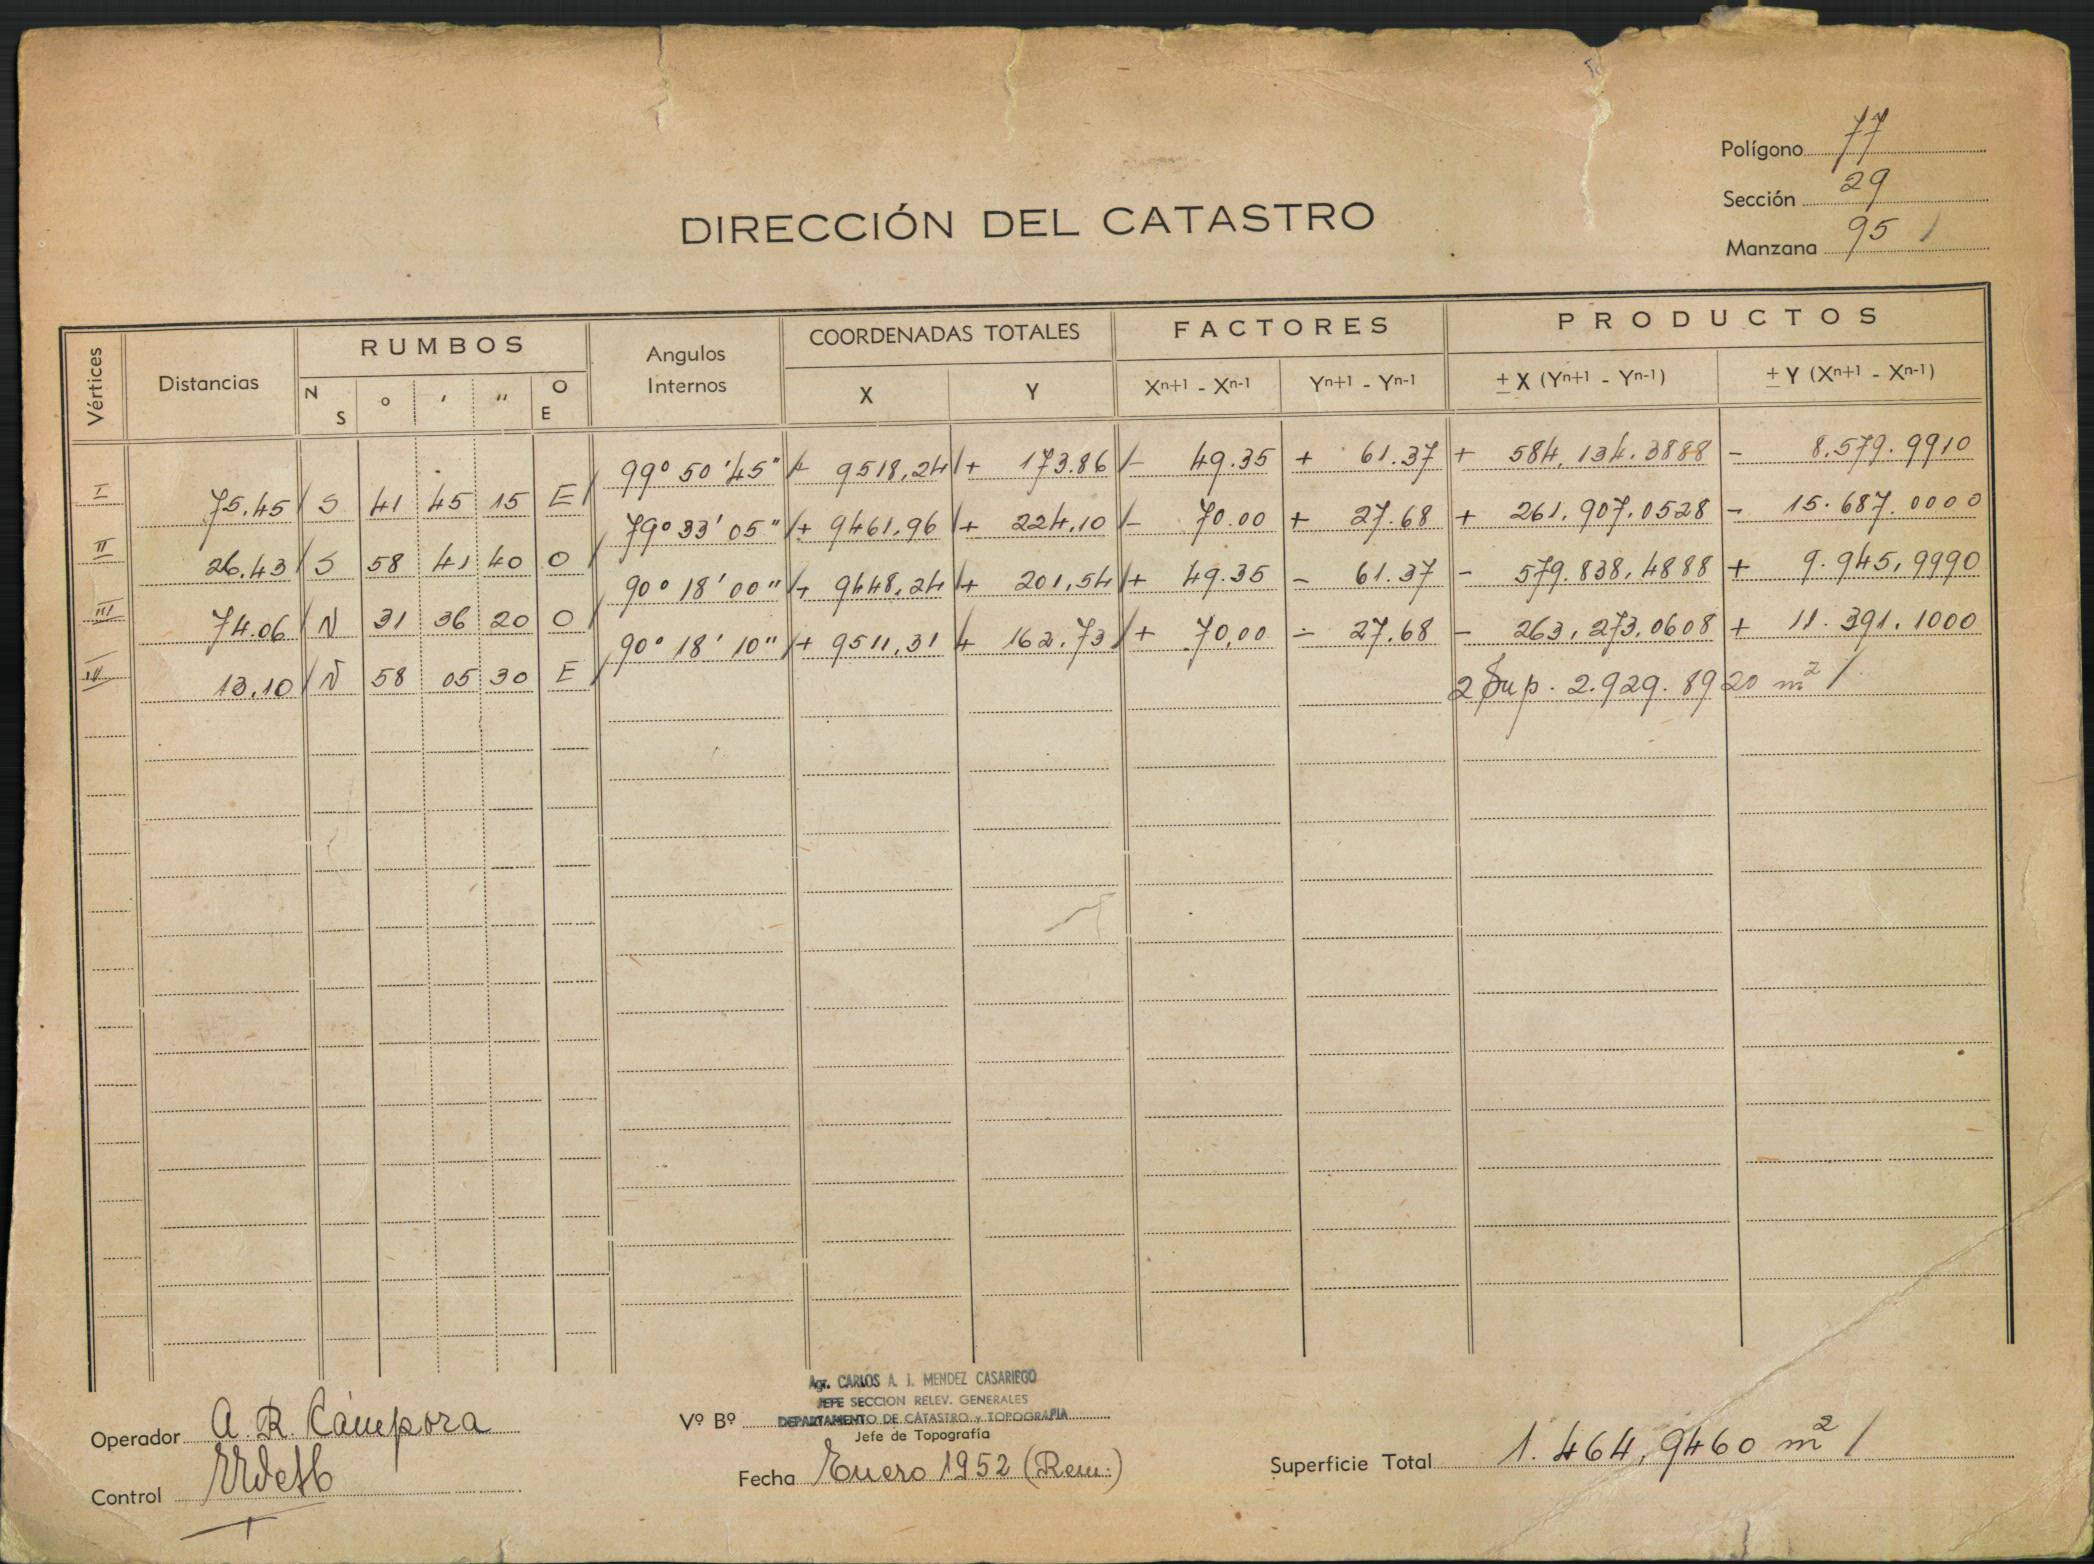 Polígono 77
Sección 29
Manzana 95 /
DIRECCIÓN DEL CATASTRO
Vértices Distancias RUMBOS Angulos Internos COORDENADAS TOTALES FACTORES PRODUCTOS
N S ° ' " O E X Y Xn+1 - Xn-1 Yn+1 - Yn-1 ± X (Yn+1 - Yn-1) ± Y (Xn+1 - Xn-1)
99° 50' 45" /+ 9518,24 /+ 173.86 /- 49.35 + 61.37 + 584.134.3888 - 8.579.9910
I 75.45 / S 41 45 15 E /
79° 33' 05" /+ 9461,96 /+ 224,10 /- 70.00 + 27.68 + 261.907.0528 - 15.687.0000
II 26.43 / S 58 41 40 O /
90° 18' 00" /+ 9448,24 /+ 201,54 /+ 49.35 - 61.37 - 579.838,4888 + 9.945,9990
III 74.06 / N 31 36 20 O /
90° 18' 10" /+ 9511,31 /+ 162.73 /+ 70,00 - 27.68 - 263,273.0608 + 11.391.1000
IV 13,10 / N 58 05 30 E /
2 Sup. 2.929.8920 m² /
Agr. CARLOS A. J. MENDEZ CASARIEGO
JEFE SECCION RELEV. GENERALES
DEPARTAMENTO DE CATASTRO y TOPOGRAFIA
Operador A. R. Cámpora
Vº Bº
Jefe de Topografía
Control
Fecha Enero 1952 (Rem:)
Superficie Total 1.464,9460 m² /